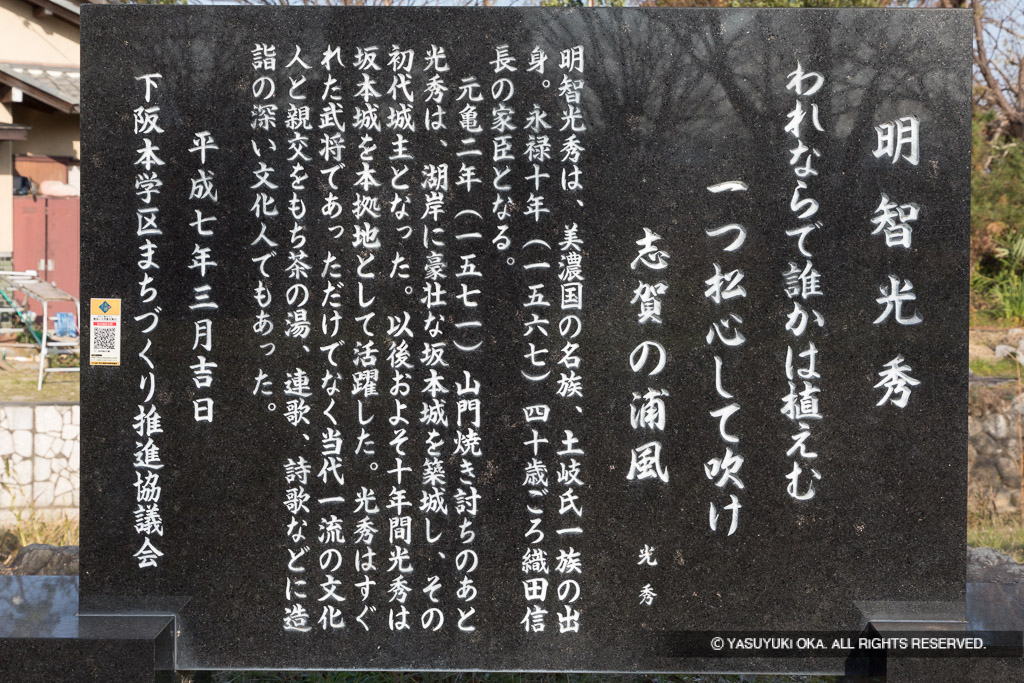 明智光秀
われならで誰かは植えむ
一つ松心して吹け
志賀の浦風
光秀
明智光秀は、美濃国の名族、土岐氏一族の出
身。永禄十年（一五六七）四十歳ごろ織田信
長の家臣となる。
元亀二年（一五七一）山門焼き討ちのあと
光秀は、湖岸に豪壮な坂本城を築城し、その
初代城主となった。以後およそ十年間光秀は
坂本城を本拠地として活躍した。光秀はすぐ
れた武将であっただけでなく当代一流の文化
人と親交をもち茶の湯、連歌、詩歌などに造
詣の深い文化人でもあった。
平成七年三月吉日
下阪本学区まちづくり推進協議会
© YASUYUKI OKA. ALL RIGHTS RESERVED.